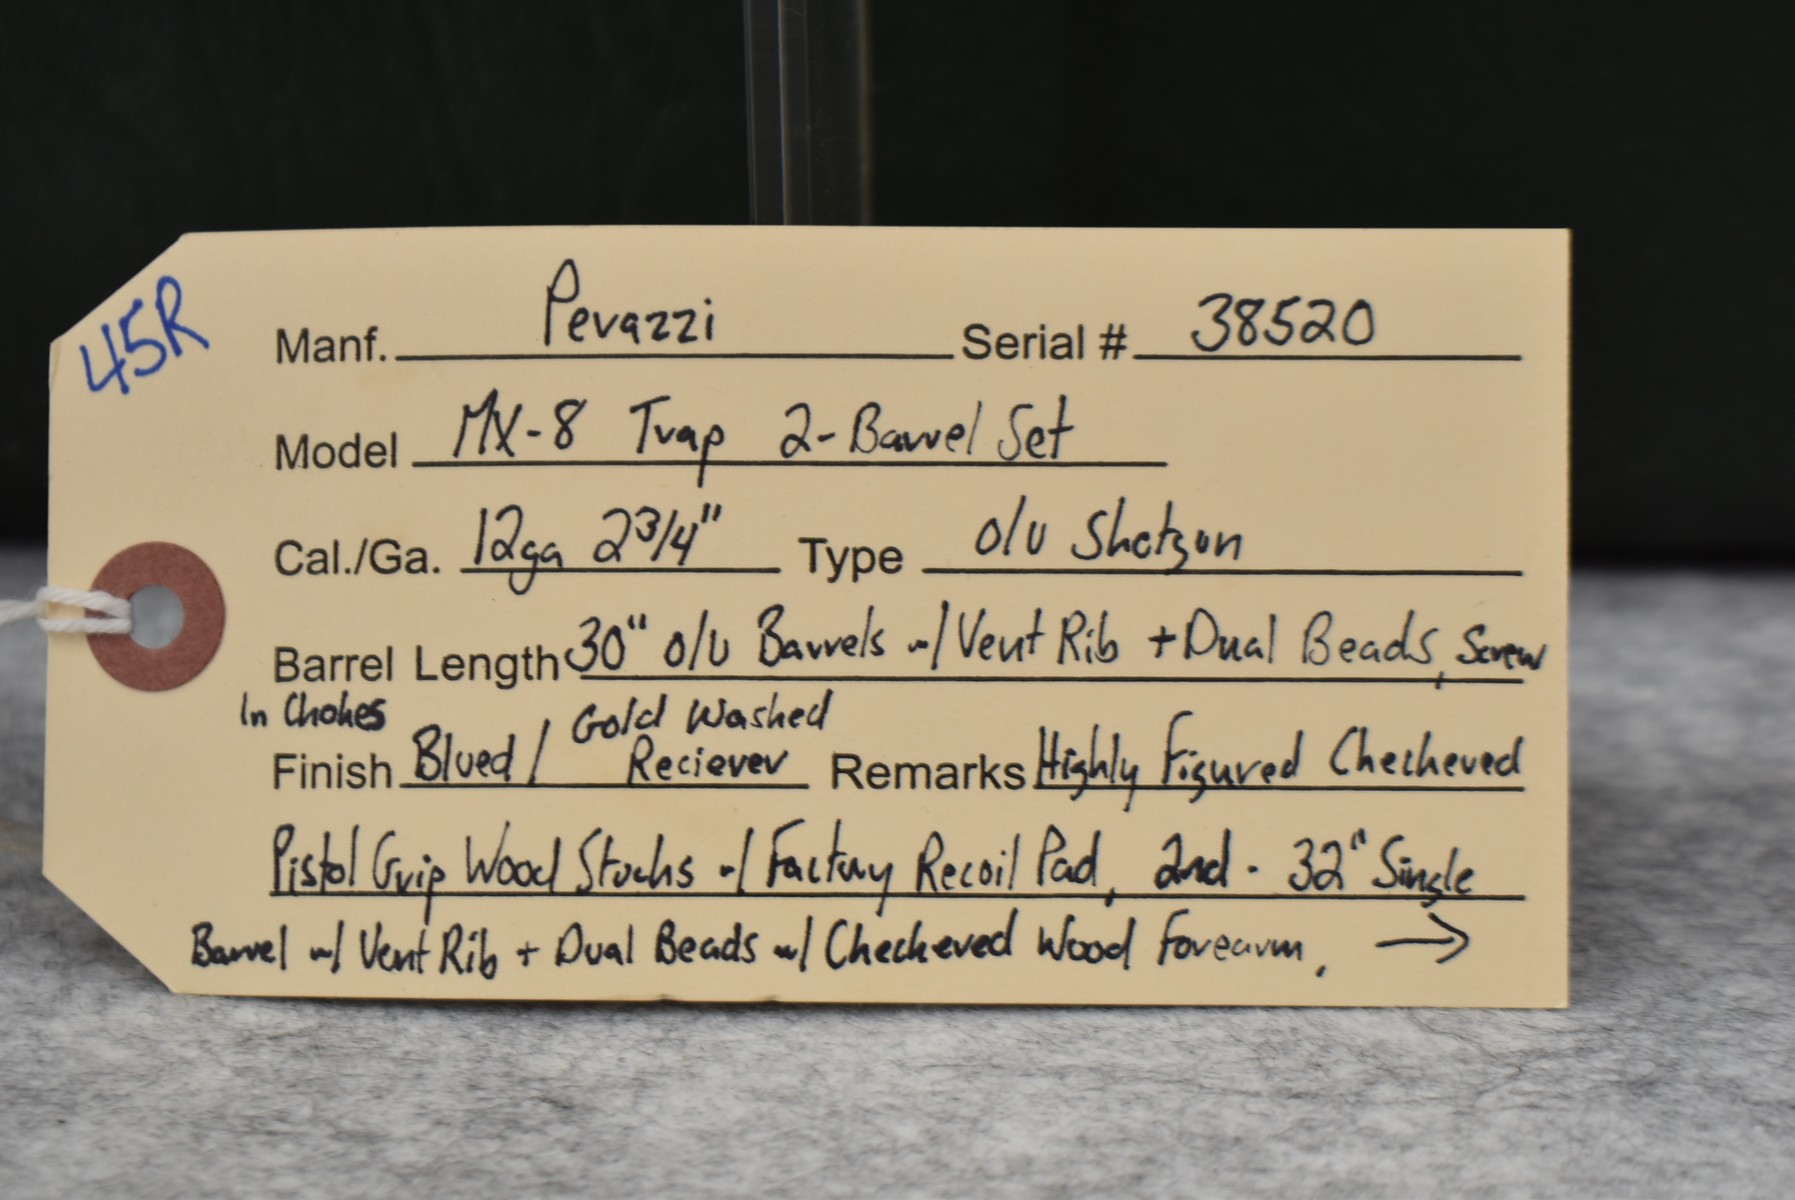 45R
Manf. Perazzi Serial # 38520
Model MX-8 Trap 2-Barrel Set
Cal./Ga. 12ga 2 3/4" Type O/U Shotgun
Barrel Length 30" O/U Barrels w/ Vent Rib + Dual Beads, Screw
In Chokes
Finish Blued / Gold Washed Reciever Remarks Highly Figured Checkered
Pistol Grip Wood Stocks w/ Factory Recoil Pad, 2nd - 32" Single
Barrel w/ Vent Rib + Dual Beads w/ Checkered Wood Forearm, →